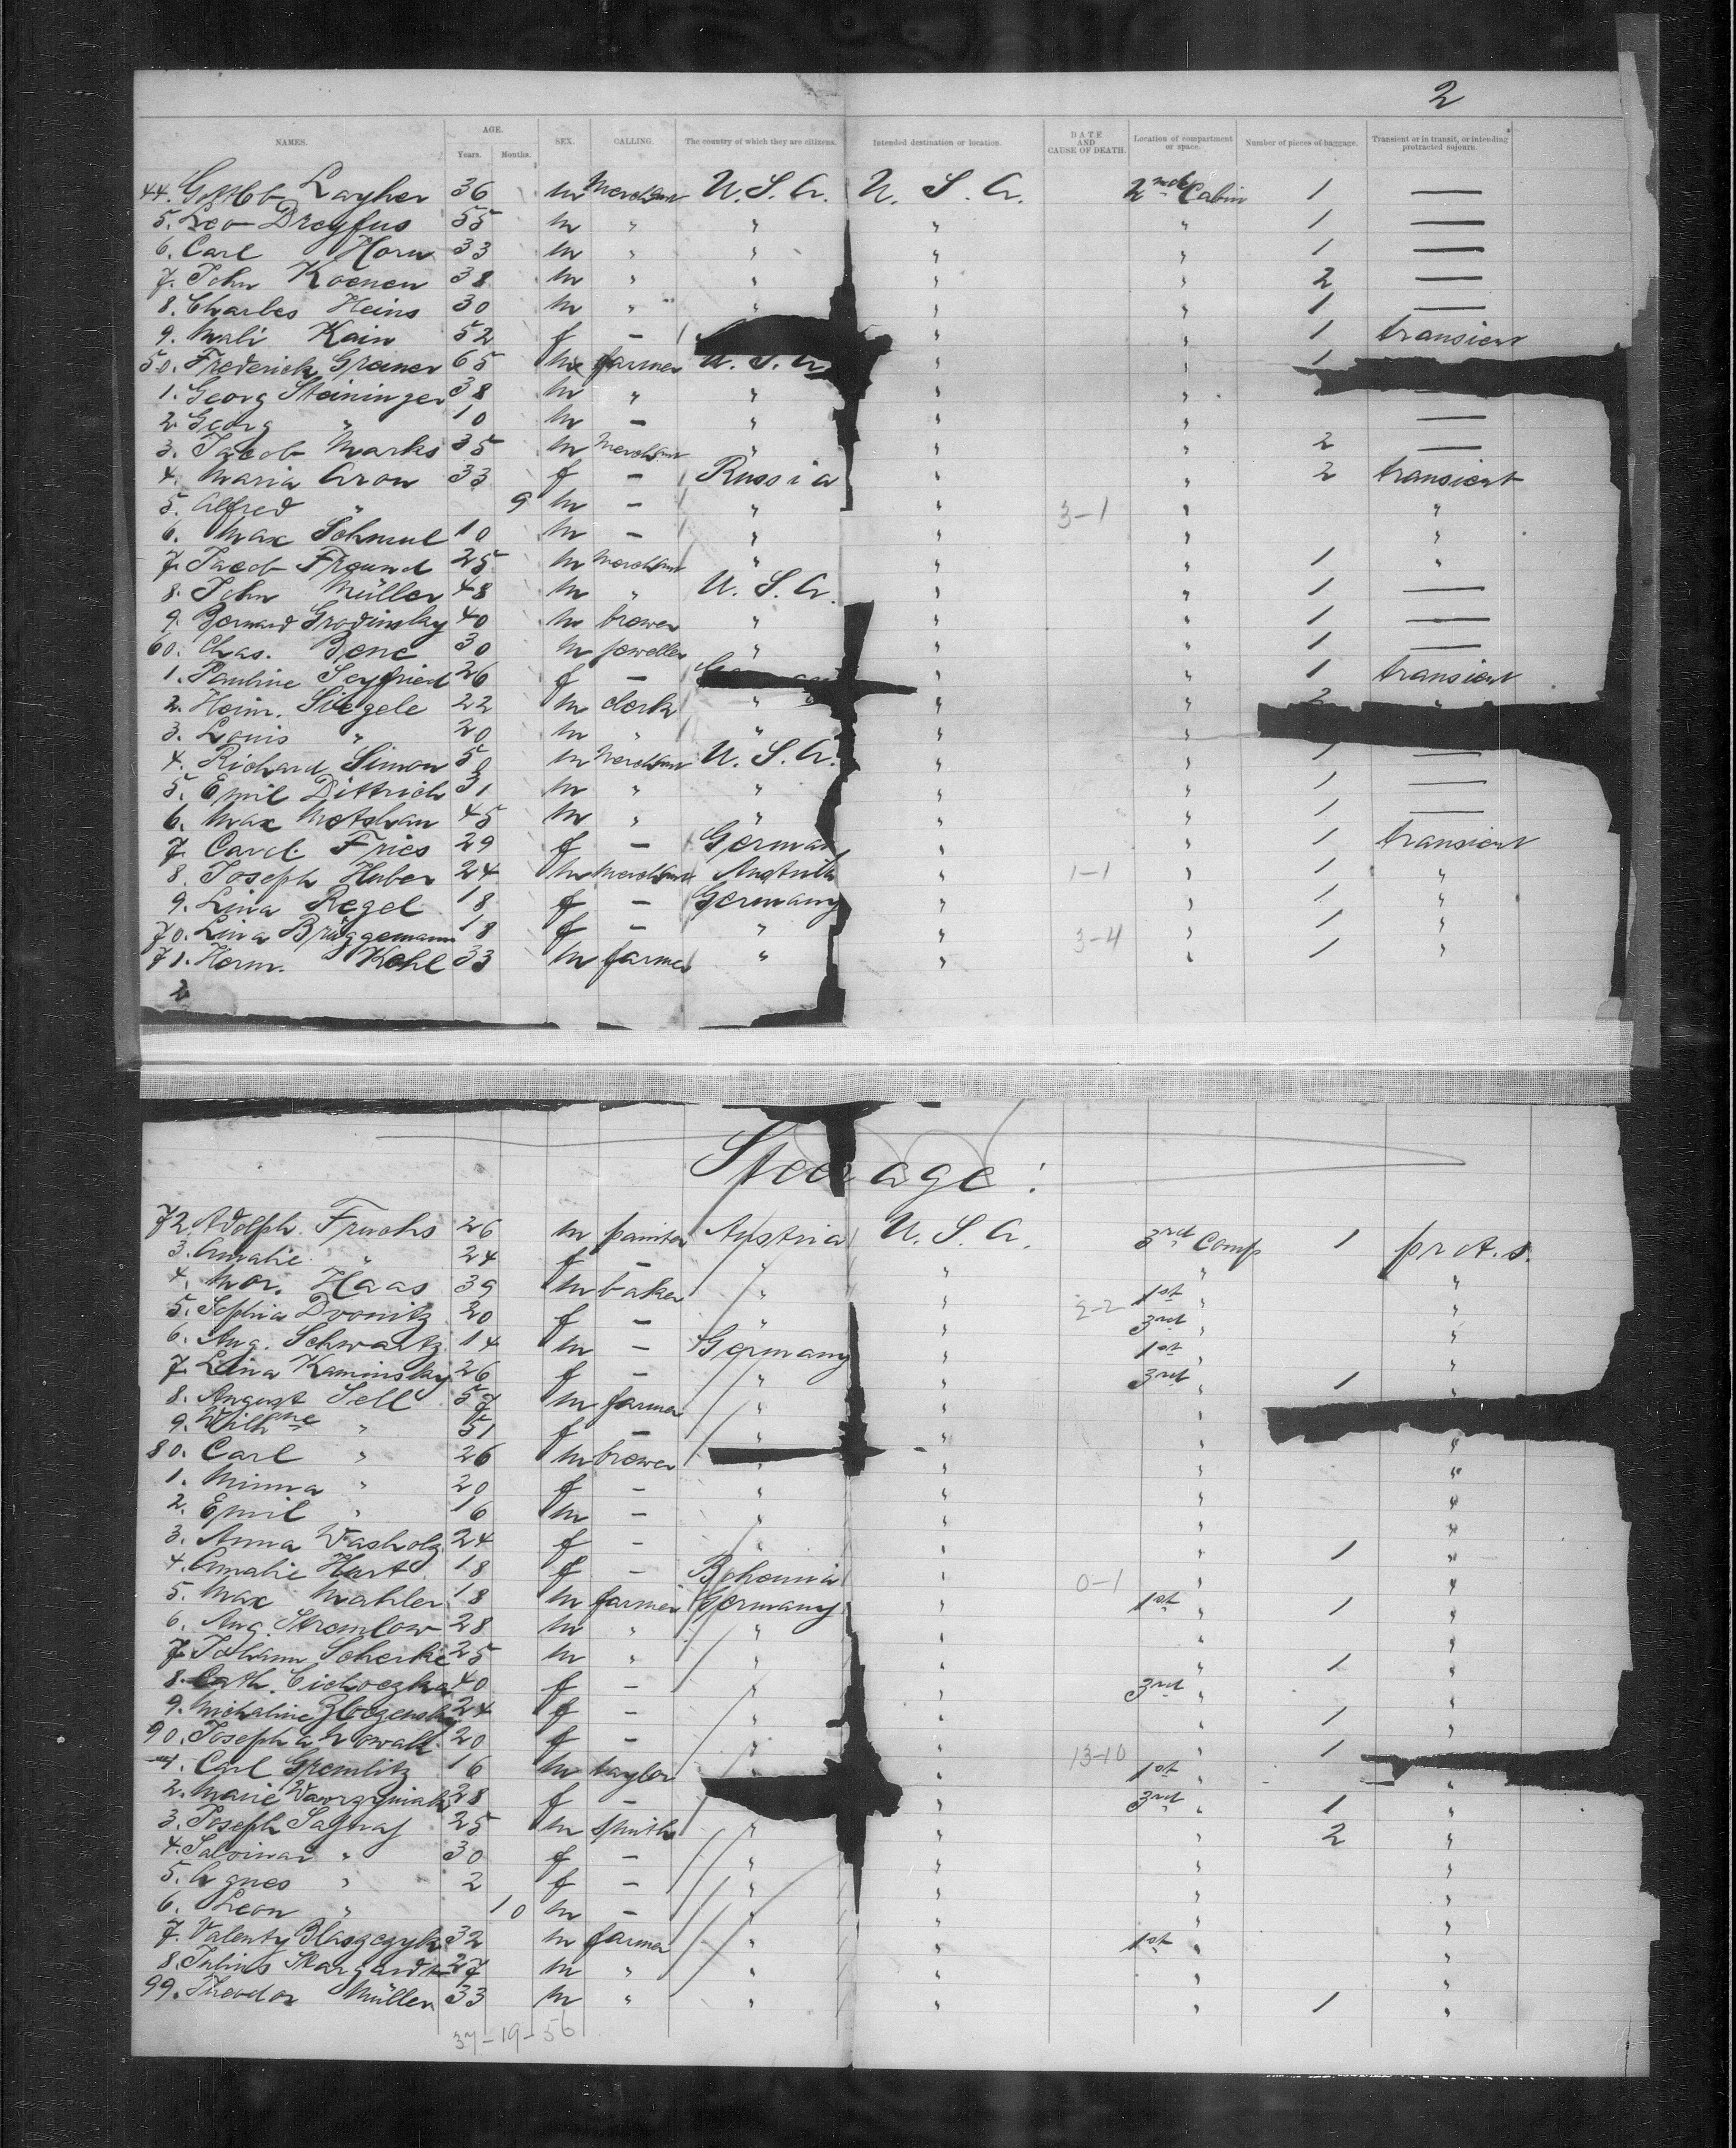 2
NAMES. AGE. SEX. CALLING. The country of which they are citizens. Intended destination or location. DATE AND CAUSE OF DEATH. Location of compartment or space. Number of pieces of baggage. Transient or in transit, or intending protracted sojourn.
Years. Months.
44. Layher 36 m U.S.A. U.S.A. 2nd Cabin 1 —
5. Leo Dreyfus 55 m " " " " 1 —
6. Carl Horn 33 m " " " " 1 —
7. John Koenen 38 m " " " " 2 —
8. Charles Heins 30 m " " " " 1 —
9. Mali Kain 52 f — " " 1 transient
50. Frederick Greiner 65 m farmer U.S.A. " " 1
1. Georg Steininger 38 m " " " "
2. Georg " 10 m — " " —
3. Jacob Marks 35 m " " " 2 —
4. Maria Aron 33 f — Russia " " 2 transient
5. Alfred " 9 m — " " 3-1 " "
6. Max Schmul 10 m — " " " "
7. Jacob Freund 25 m " " " 1 "
8. John Müller 48 m " U.S.A. " " 1 —
9. Bernard Grodinsky 40 m brewer " " " 1 —
60. Chas. Bene 30 m jeweller " " " 1 —
1. Pauline Seyfried 26 f — " " 1 transient
2. Heinr. Siegele 22 m clerk " " " 2 "
3. Louis " 20 m " " " "
4. Richard Simon 50 m U.S.A. " " 1 —
5. Emil Dittrich 31 m " " " " 1 —
6. Max 45 m " " " " 1 —
7. Fries 29 f — German " " 1 transient
8. Joseph Huber 24 m " 1-1 " 1 "
9. Lina Regel 18 f — Germany " " 1 "
70. Lina Brüggemann 18 f — " " 3-4 " 1 "
71. Herm. Kohl 33 m farmer " " " 1 "
2
Steerage:
72. Adolph 26 m painter Austria U.S.A. 3rd Comp 1
3. Amalie " 24 f — " " " "
4. Mor. Haas 39 m baker " " 1st " "
5. Sophia 20 f — " " 2-2 3rd " "
6. Aug. Schwartz 14 m — Germany " 1st " "
7. Lina Kaminsky 26 f — " " 3rd " 1 "
8. August Sell m farmer " " "
9. Wilhne " 51 f — " " " "
80. Carl " 26 m brewer " " " "
1. Minna " 20 f — " " " "
2. Emil " 16 m — " " " "
3. Anna 24 f — " " " 1 "
4. Amalie 18 f — Bohemia " 0-1 " "
5. Max Mahler 18 m farmer Germany " 1st " 1 "
6. Aug. 28 m " " " " "
7. Johann Scherke 25 m " " " " 1 "
8. Cath. 40 f — " " 3rd " "
9. Michaline 24 f — " " " 1 "
90. Josepha Nowak 20 f — " " 13-10 " 1
1. Carl Gremlitz 16 m taylor " " 1st " "
2. Marie Wawrzyniak 28 f — " 3rd " 1 "
3. Joseph 25 m smith " " " 2 "
4. " 30 f — " " " "
5. Agnes " 2 f — " " " "
6. Leon " 10 m — " " " "
7. Valenty Blaszczyk 32 m farmer " " 1st " "
8. Julius 27 m " " " " "
99. Theodor Müller 33 m " " " " 1 "
37-19-56